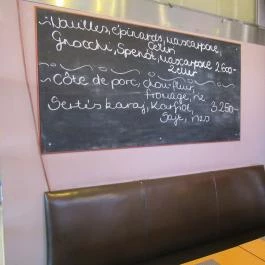 Nouilles, épinards, mascarpone,
Céleri
Gnocchi, Spenót, mascarpone
Zeller 2600-
Côte de porc, chou-fleur,
fromage, riz
Sertéskaraj, Karfiol, 3250-
Sajt, rizs